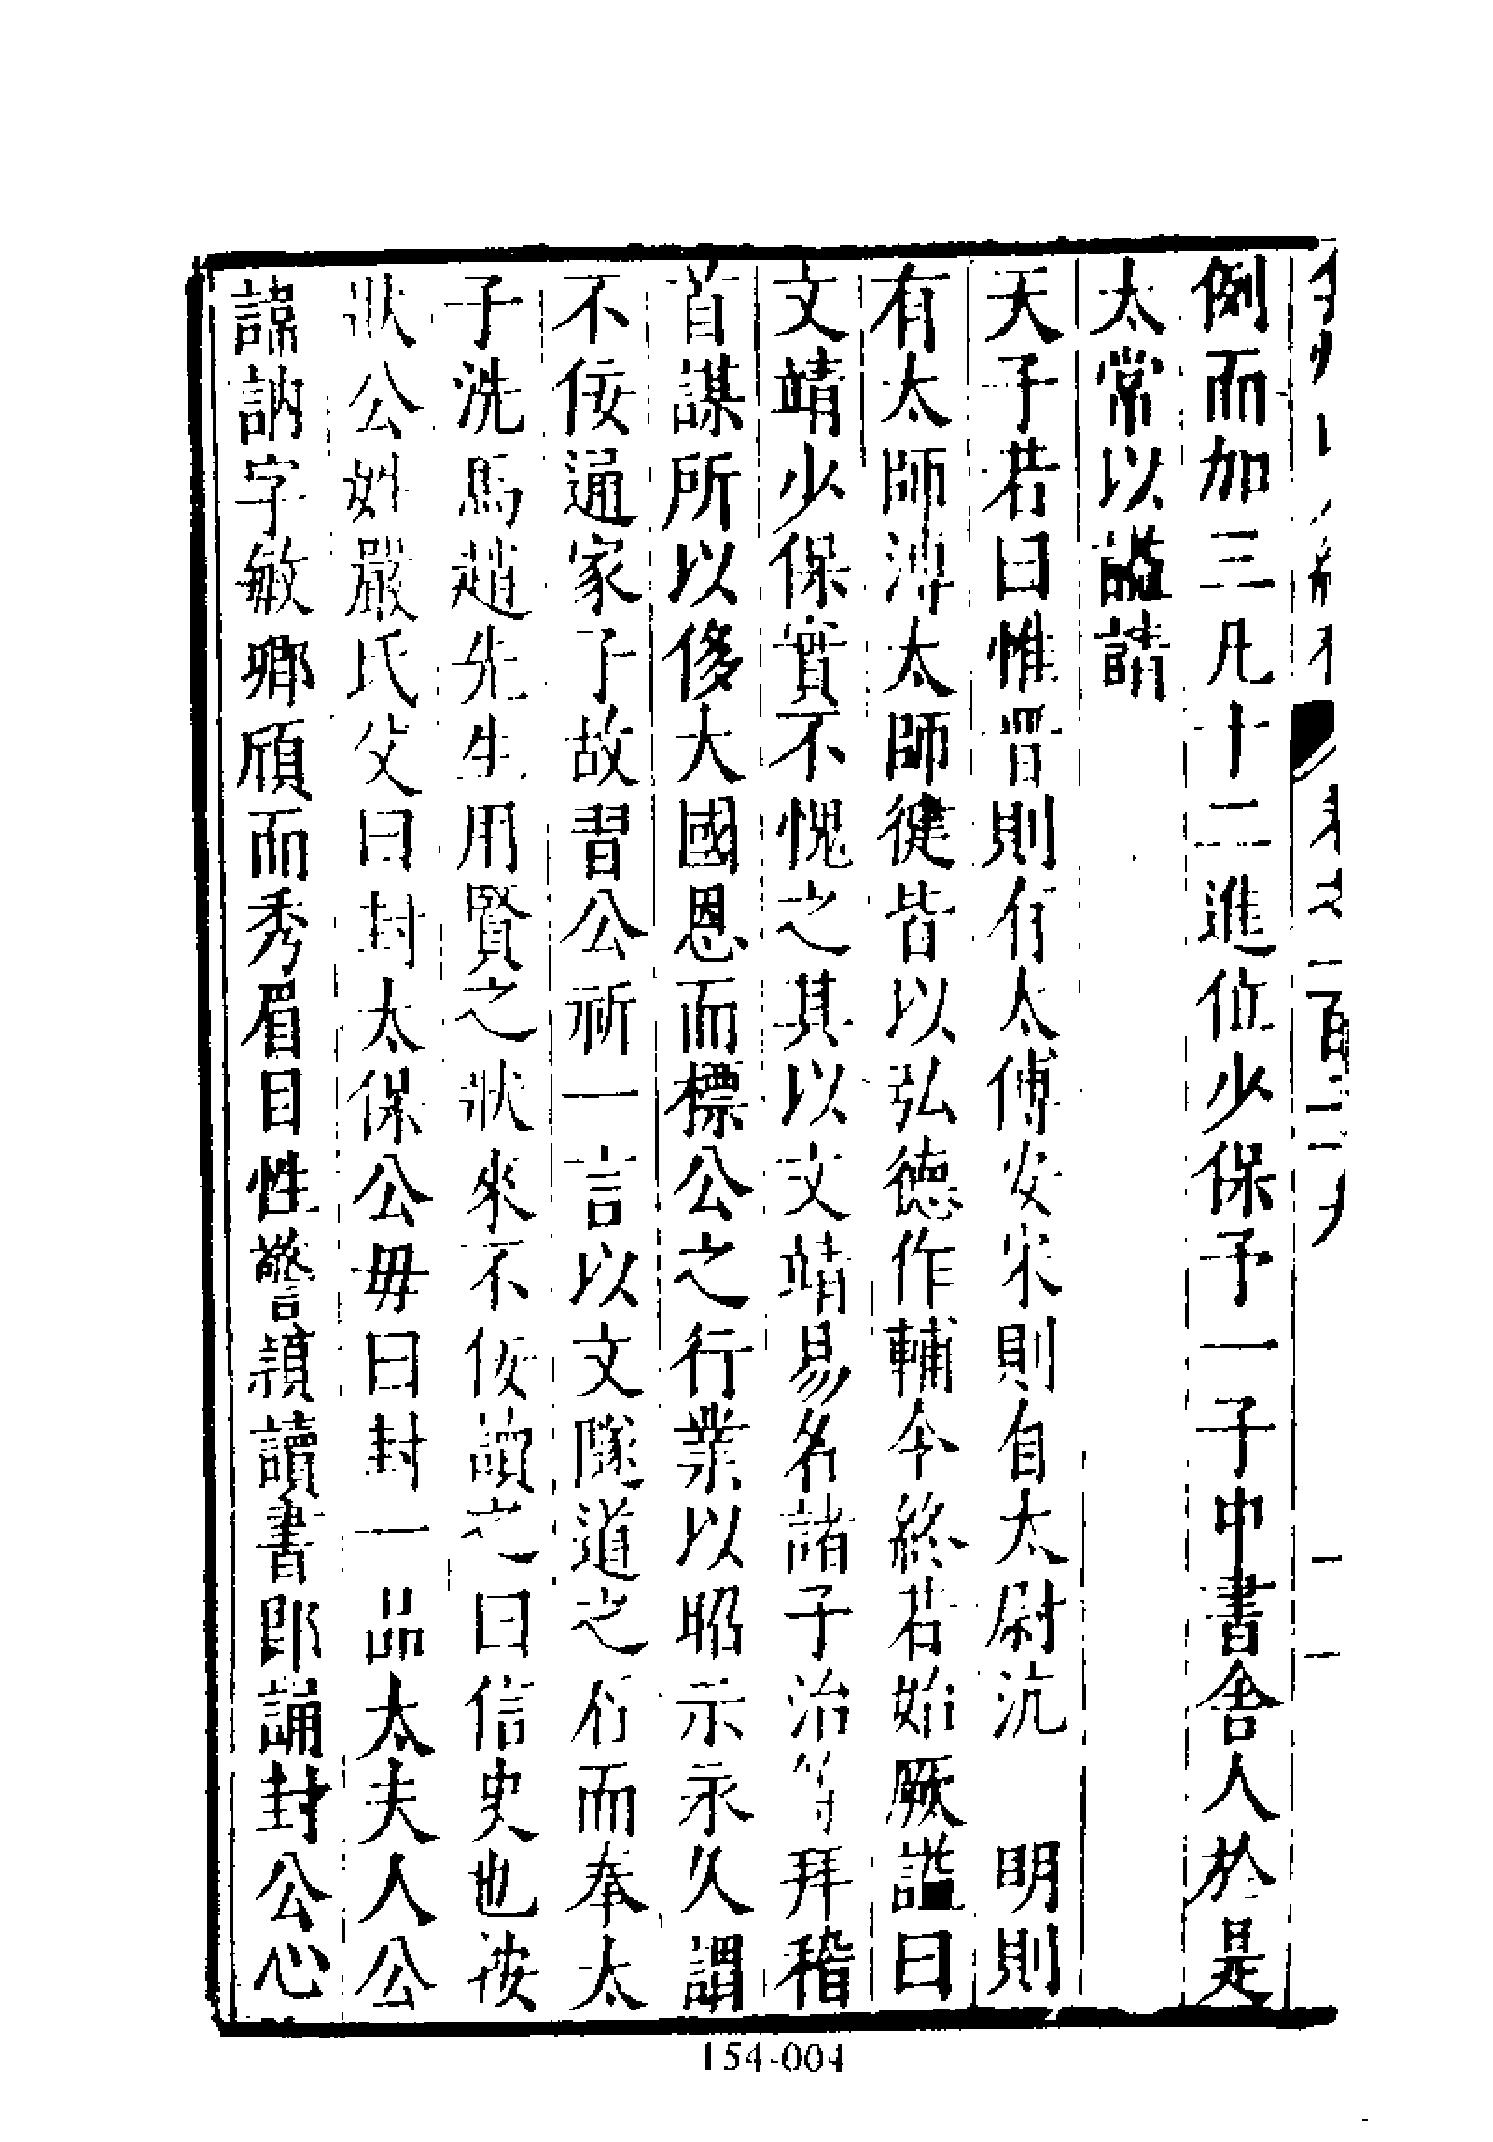 例而加三凡十二進位少保予一子中書舍人於是
太常以謚請
天子若曰惟晋則有太傅安宋則自太尉沆 明則
有太師溥太師徤皆以弘德作輔令終若始厥謚曰
文靖少保實不愧之其以文靖易名諸子治等拜稽
首謀所以侈大國恩而標公之行業以昭示永久謂
不佞通家子故習公祈一言以文隧道之行而奉太
子洗馬趙先生用賢之狀來不佞讀之曰信史也按
狀公姓嚴氏父曰封太保公毋曰封一品太夫人公
諱訥字敏卿頎而秀眉目性警頴讀書郎誦封公心
154-004